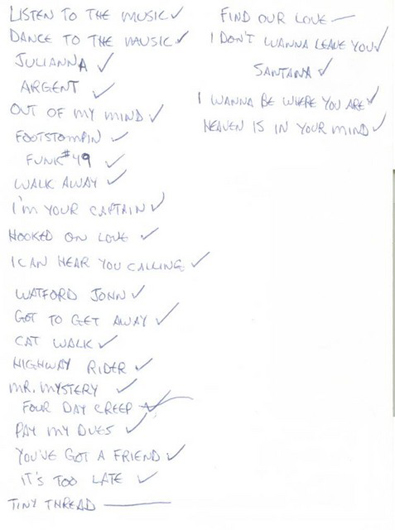 LISTEN TO THE MUSIC ✓
DANCE TO THE MUSIC ✓
JULIANNA ✓
ARGENT ✓
OUT OF MY MIND ✓
FOOTSTOMPIN ✓
FUNK #49 ✓
WALK AWAY ✓
I'M YOUR CAPTAIN ✓
HOOKED ON LOVE ✓
I CAN HEAR YOU CALLING ✓
WATFORD JOHN ✓
GOT TO GET AWAY ✓
CAT WALK ✓
HIGHWAY RIDER ✓
MR. MYSTERY ✓
FOUR DAY CREEP ✓
PAY MY DUES ✓
YOU'VE GOT A FRIEND ✓
IT'S TOO LATE ✓
TINY THREAD —
FIND OUR LOVE —
I DON'T WANNA LEAVE YOU ✓
SANTANA ✓
I WANNA BE WHERE YOU ARE ✓
HEAVEN IS IN YOUR MIND ✓